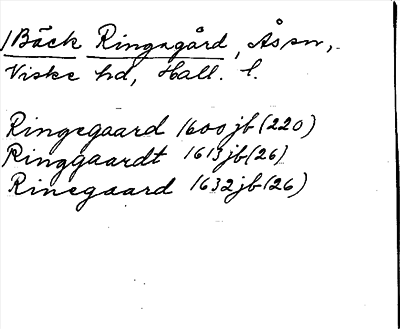 /Bäck Ringagård, Ås sn,
Viske hd, Hall. l.
Ringegaard 1600 jb (220)
Ringgaardt 1613 jb (26)
Rinegaard 1632 jb (26)